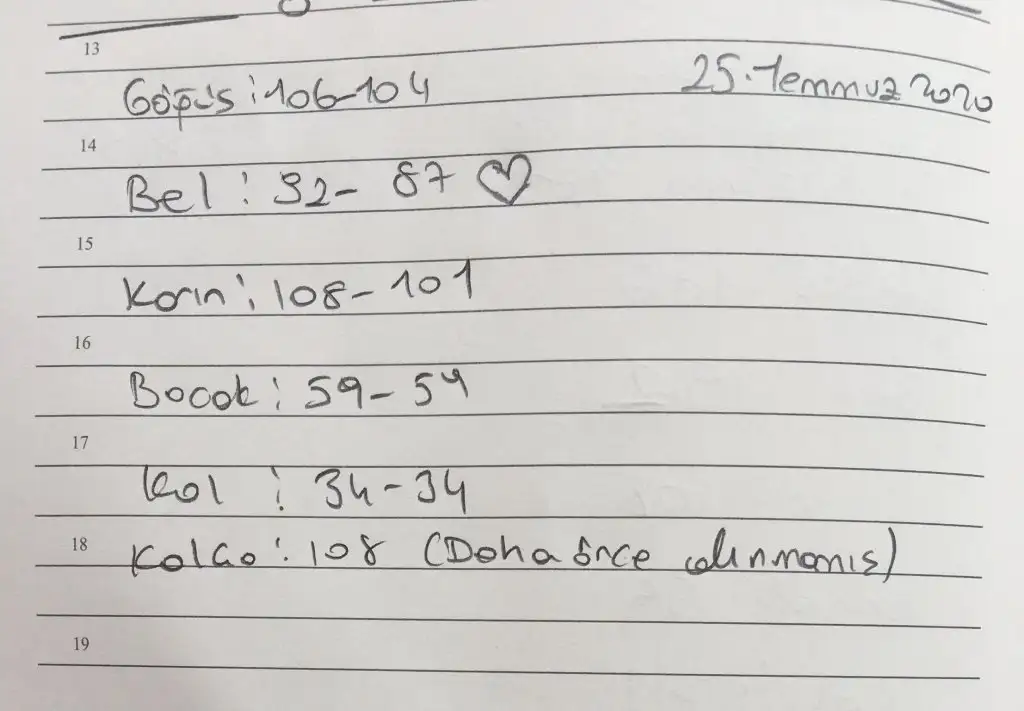 13
Göğüs: 106-104 25.Temmuz 2020
14
Bel: 92- 87 ♡
15
Karın: 108-101
16
Bacak: 59-54
17
Kol : 34-34
18
Kalça: 108 (Daha önce alınmamış)
19